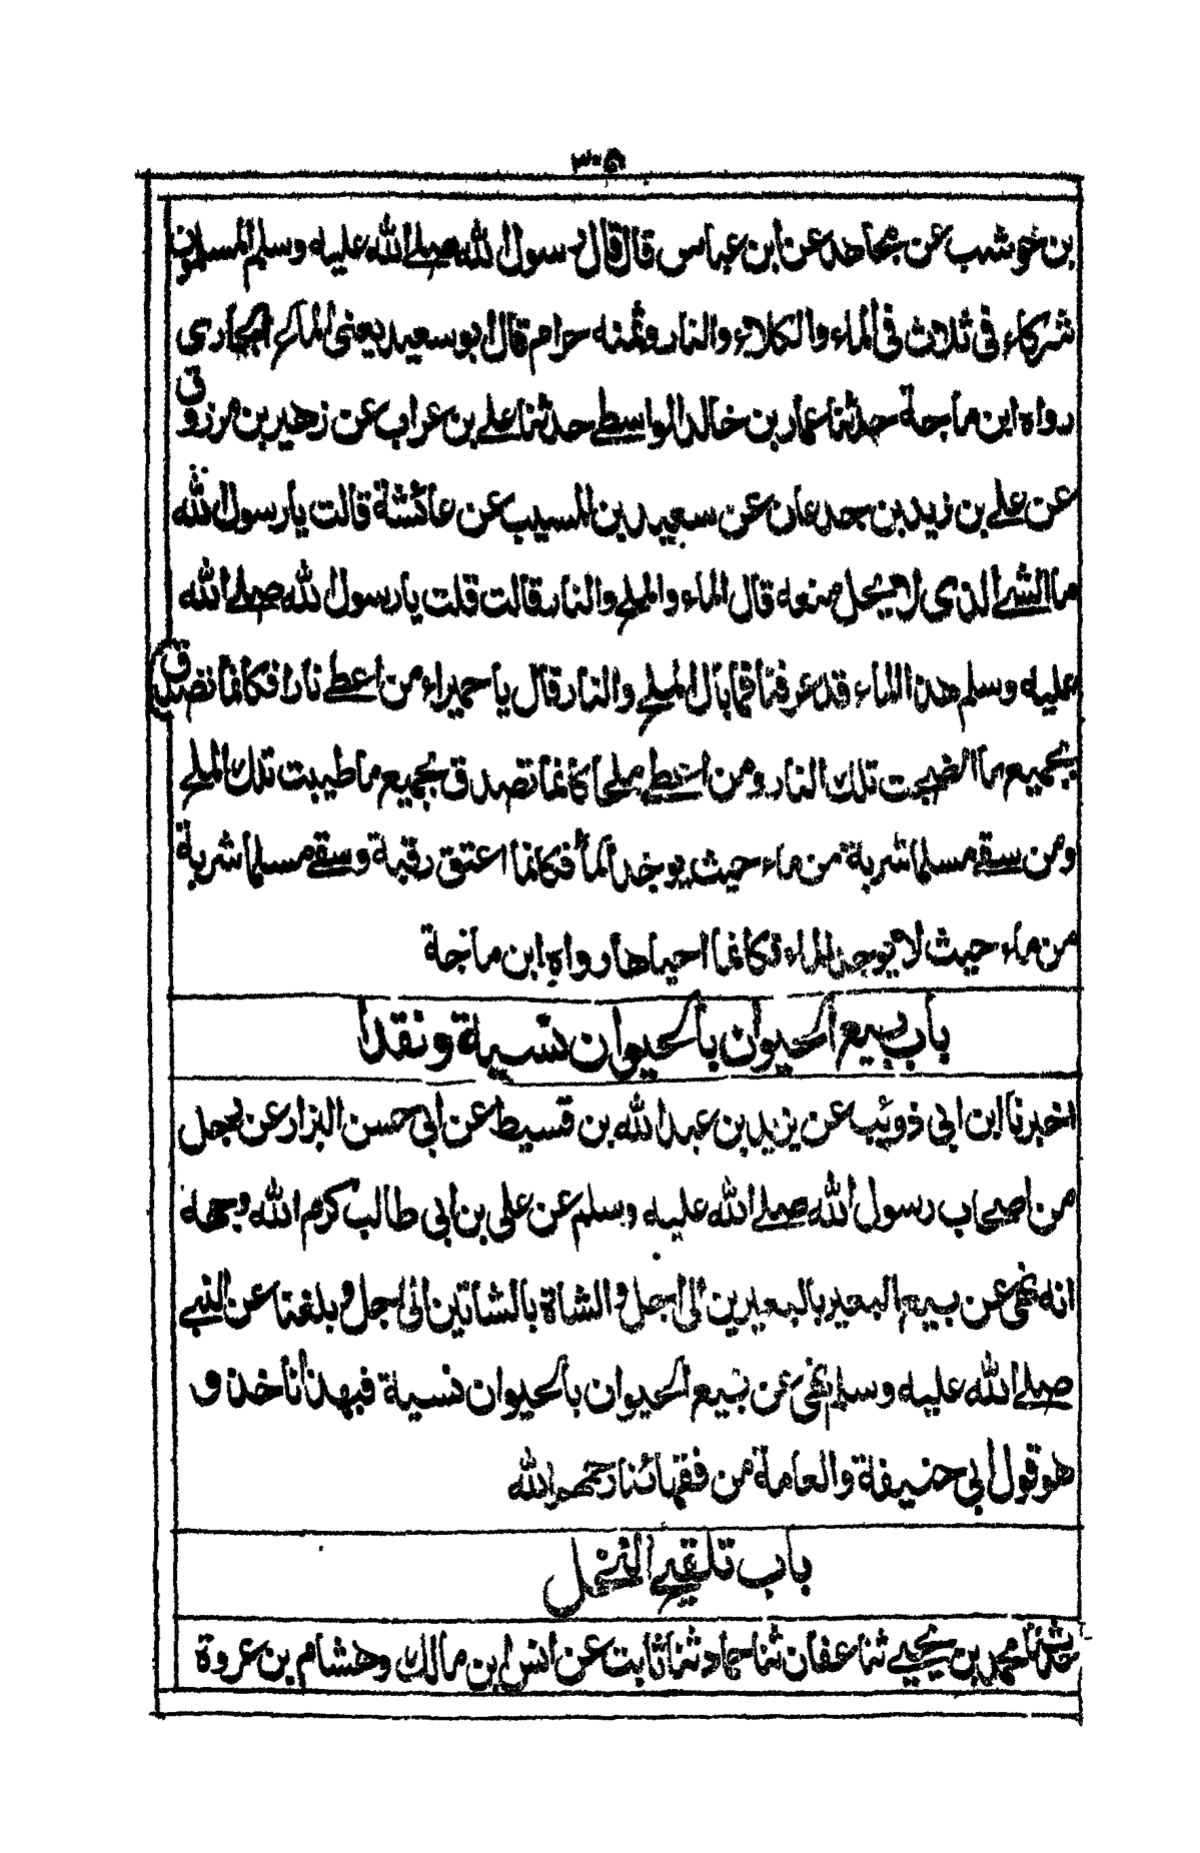 ٣٠٥
بن خوشب عن مجاهد عن ابن عباس قال قال رسول الله صلى الله عليه وسلم المسلمون
شركاء في ثلاث في الماء والكلاء والنار وثمنه حرام قال ابو سعيد يعني الماء الجاري
رواه ابن ماجة حدثنا عمار بن خالد الواسطي حدثنا علي بن عراب عن زهير بن مرزوق
عن علي بن زيد بن جدعان عن سعيد بن المسيب عن عائشة قالت يا رسول الله
ما الشئ الذي لا يحل منعه قال الماء والملح والنار قالت قلت يا رسول الله صلى الله
عليه وسلم هذا الماء قد عرفنا فما بال الملح والنار قال يا حميراء من اعطى نارا فكانما تصدق
بجميع ما انضجت تلك النار ومن اعطى ملحا كانما تصدق بجميع ما طيبت تلك الملح
ومن سقى مسلما شربة من ماء حيث يوجد الماء فكانما اعتق رقبة وسقى مسلما شربة
من ماء حيث لا يوجد الماء فكانما احياها رواه ابن ماجة
باب بيع الحيوان بالحيوان نسية ونقدا
اخبرنا ابن ابي ذوئب عن يزيد بن عبد الله بن قسيط عن ابي حسن البزار عن رجل
من اصحاب رسول الله صلى الله عليه وسلم عن علي بن ابي طالب كرم الله وجهه
انه نهى عن بيع البعير بالبعيرين الى اجل والشاة بالشاتين الى اجل وبلغنا عن النبي
صلى الله عليه وسلم نهى عن بيع الحيوان بالحيوان نسية فبهذا ناخذ و
هو قول ابي حنيفة والعامة من فقهائنا رحمهم الله
باب تلقيح النخل
حدثنا محمد بن يحيى ثنا عفان ثنا حماد ثنا ثابت عن انس ابن مالك وهشام بن عروة